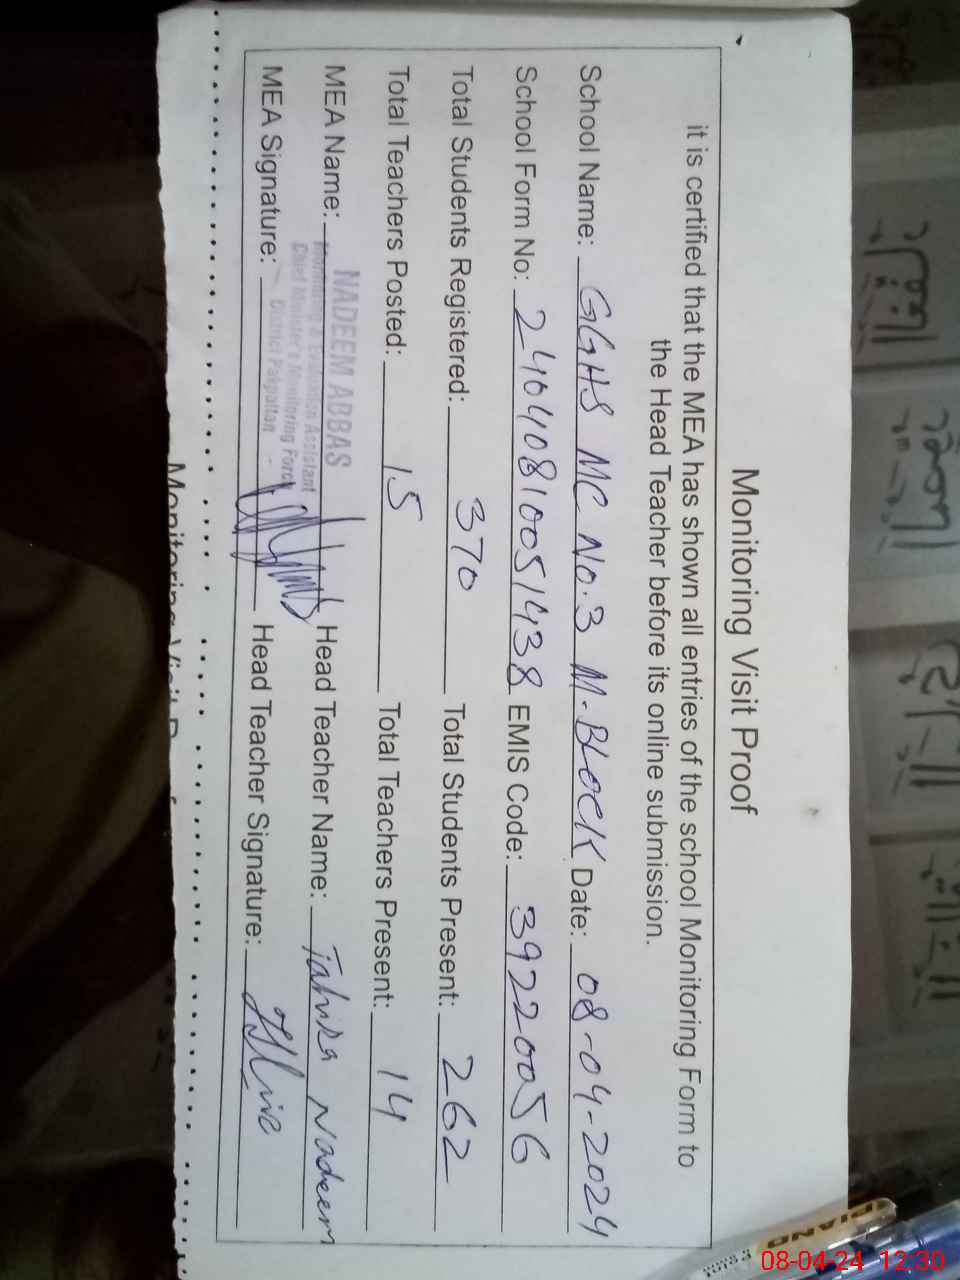 Monitoring Visit Proof
it is certified that the MEA has shown all entries of the school Monitoring Form to
the Head Teacher before its online submission.
School Name: GGHS MC No.3 M-BLOCK Date: 08-04-2024
School Form No: 24040810051438 EMIS Code: 39220056
Total Students Registered: 370 Total Students Present: 262
Total Teachers Posted: 15 Total Teachers Present: 14
MEA Name: NADEEM ABBAS Head Teacher Name: Tahira Nadeem
Monitoring & Evaluation Assistant
Chief Minister's Monitoring Force
District Pakpattan
MEA Signature: Head Teacher Signature:
Monitoring Visit
PIANO
08-04-24 12:30